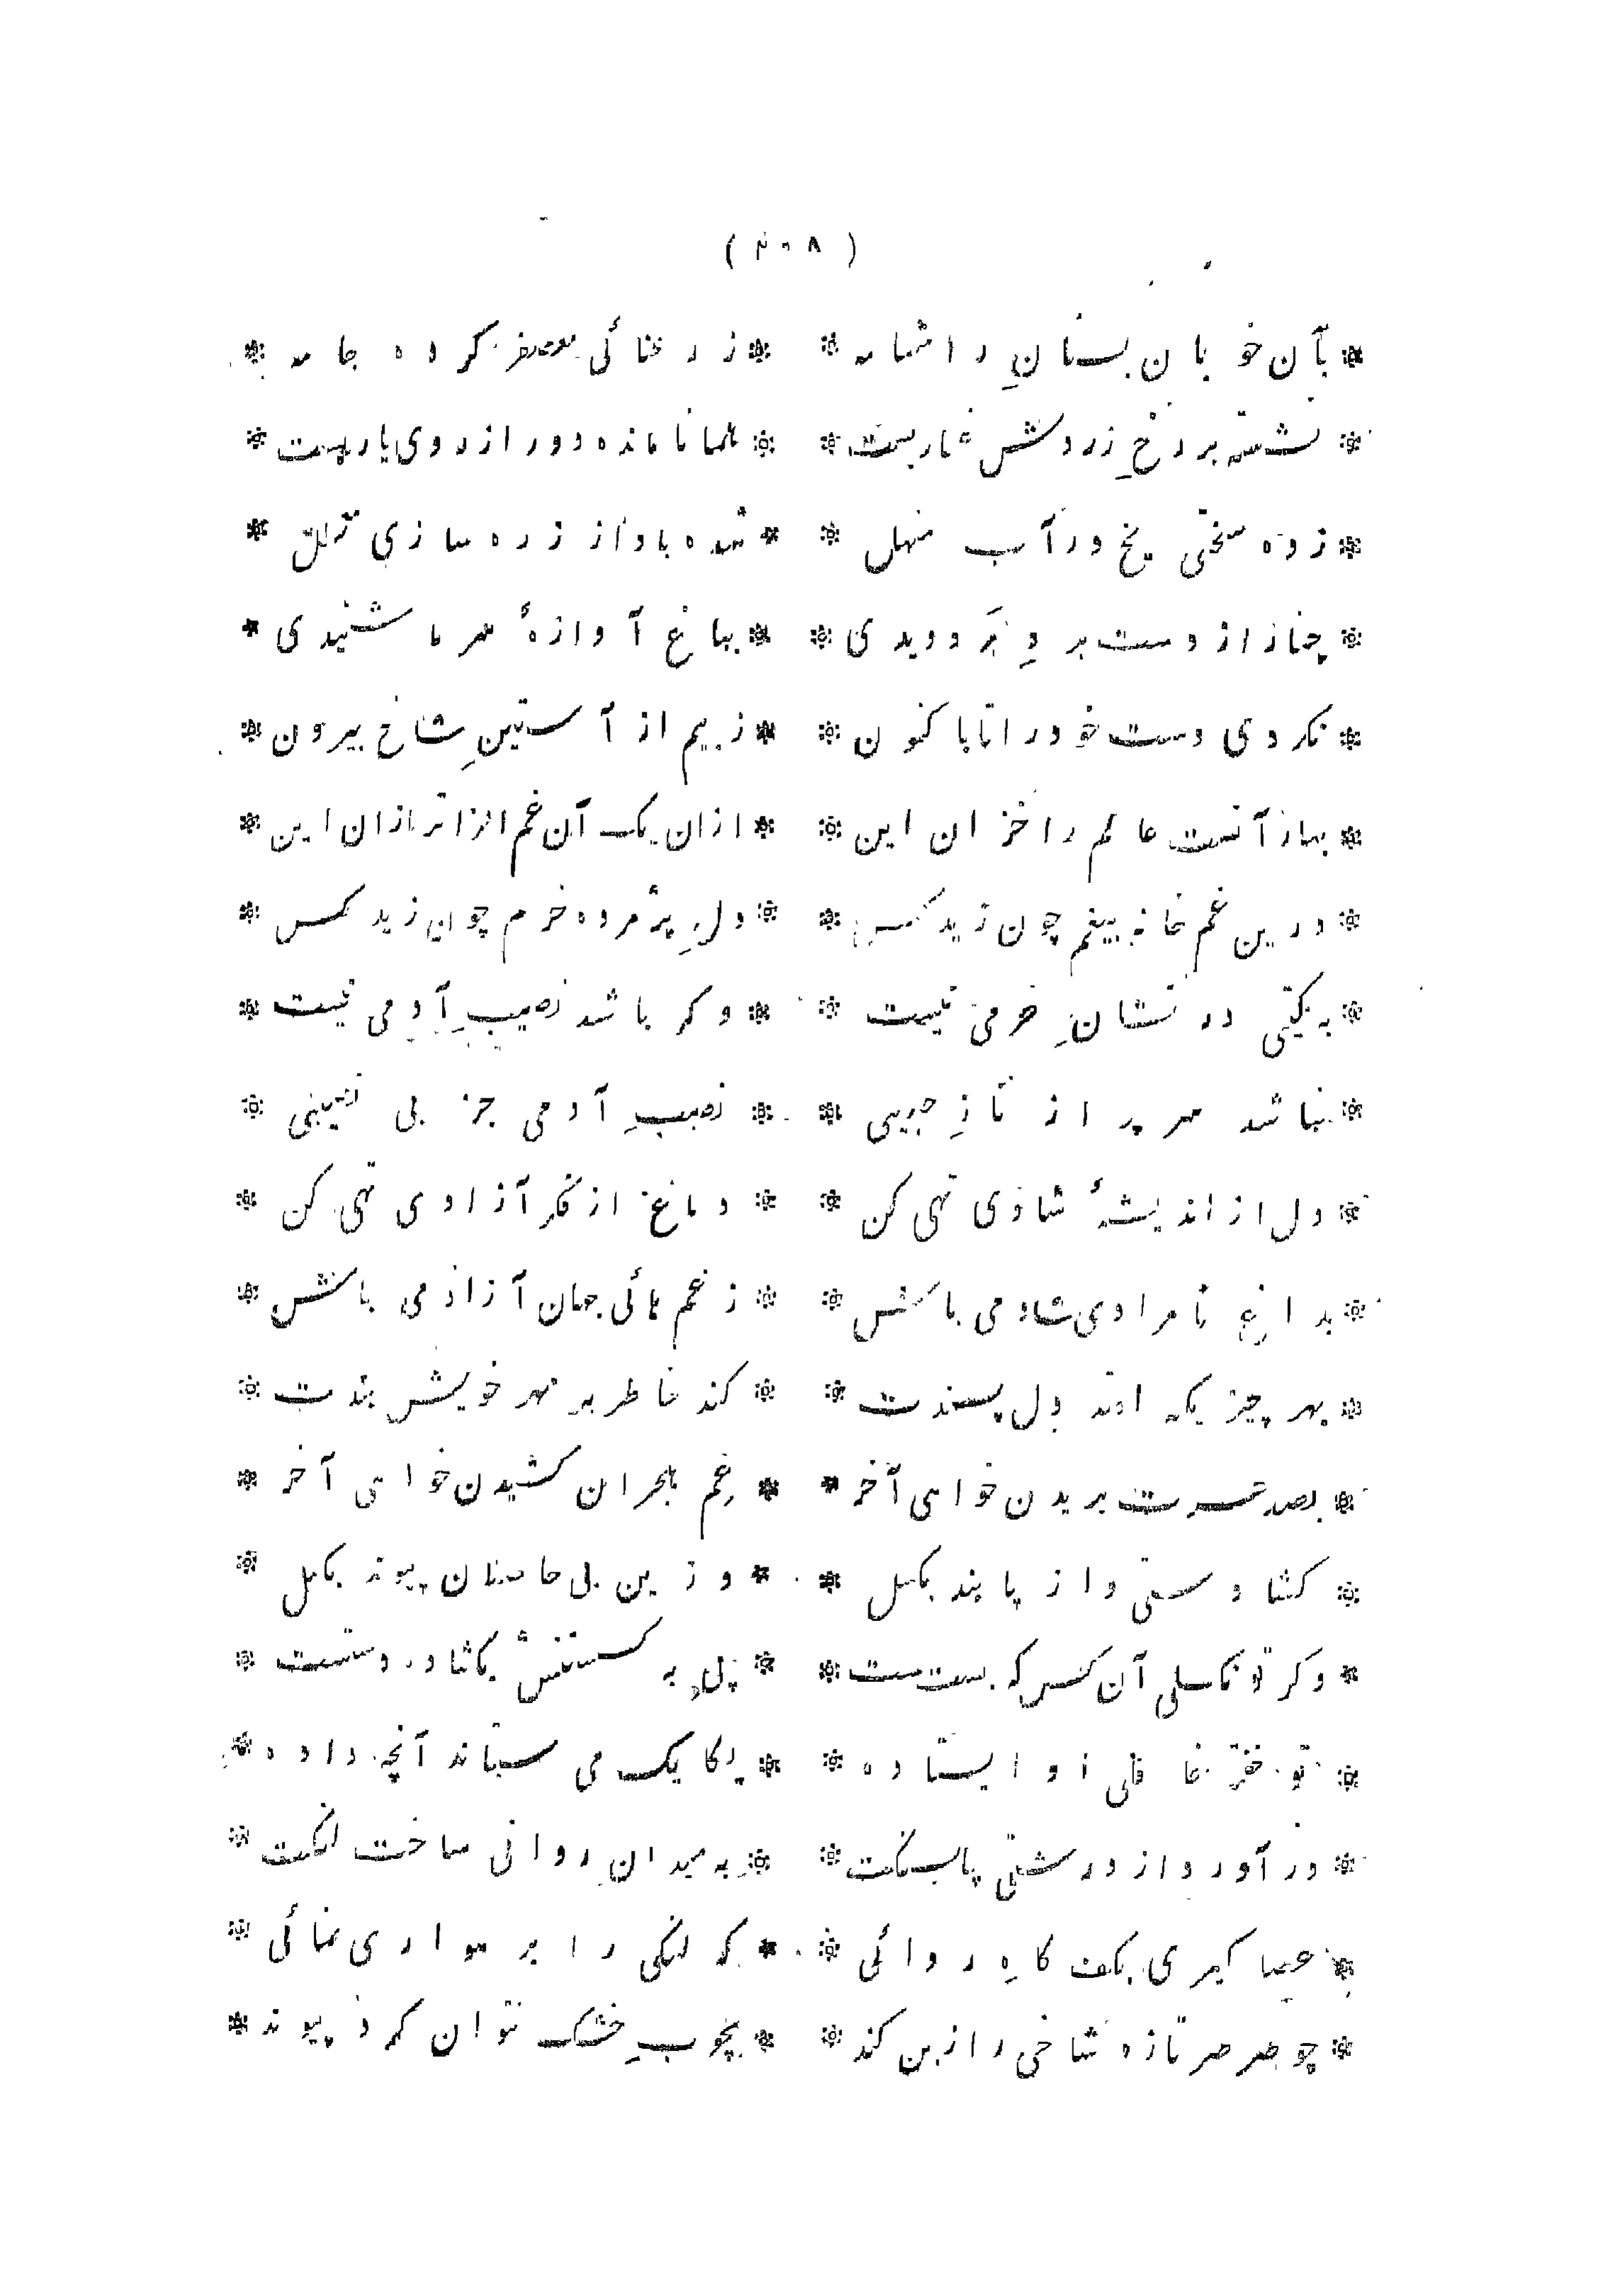 ( ۴۰۸ )
* بآن خوبان بستانِ را شمامه * * ز رعنائی معصفر کرده جامه *
* نشسته بر رخِ زردش غباریست * * همانا مانده دور از روی یاریست *
* زده سختی یخ در آب منهل * * شده باد از زره سازی معطل *
* چنار از دست بردِ بَرد دیدی * * بباغ آوازهٔ سرما شنیدی *
* نکردی دست خود را تا باکنون * * ز بیم از آستینِ شاخ بیرون *
* بهار آنست عالم را خزان این * * ازان یک آن غم افزاتر ازان این *
* درین غم خانه بیغم چون زید کس * * دلِ پژمرده خرم چون زید کس *
* به گیتی در نشانِ خرمی نیست * * وگر باشد نصیبِ آدمی نیست *
* نباشد سر پر از نازِ حبیبی * * نصیبِ آدمی جز بی نصیبی *
* دل از اندیشهٔ شادی تهی کن * * دماغ از فکر آزادی تهی کن *
* بداغِ نامرادی شاد می باش * * ز غم هائی جهان آزاد می باش *
* بهر چیزیکه افتد دل پسندت * * کند خاطر به مهر خویش بندت *
* بصد حسرت بریدن خواهی آخر * * غم هجران کشیدن خواهی آخر *
* گشا دستی و از پا بند بگسل * * وزین بی حاصلان پیوند بگسل *
* وگر تو نگسلی آن کس که بست ست * * پیِ بگسستنش بگشاده دستست *
* تو خفته غافلی او ایستاده * * یکایک می ستاند آنچه داده *
* در آورد از درشتی پا بسنگت * * به میدانِ روانی ساخت لنگت *
* عصا گیری بکف کاهِ روائی * * که لنگی را بر هواری نمائی *
* چو صرصر تازه شاخی را زبن کند * * بچوبِ خشک نتوان کرد پیوند *